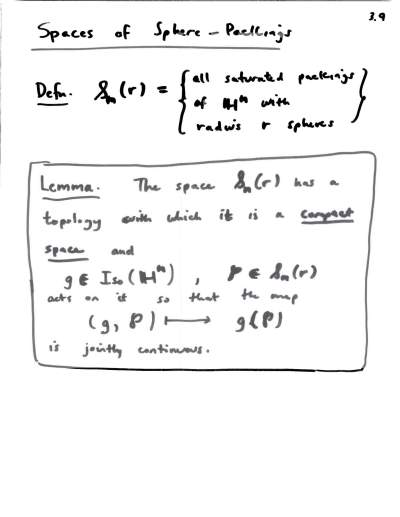 3.9
Spaces of Sphere-Packings
Defn. 𝒮ₙ(r) = { all saturated packings
of ℍⁿ with
radius r spheres }
Lemma. The space 𝒮ₙ(r) has a
topology with which it is a compact
space and
g ∈ Iso(ℍⁿ) , P ∈ 𝒮ₙ(r)
acts on it so that the map
(g, P) ⟼ g(P)
is jointly continuous.